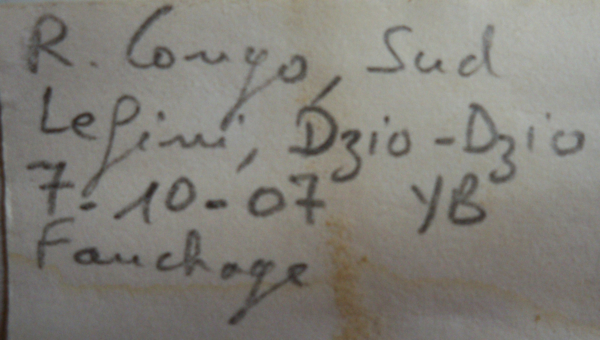 R. Congo, Sud
Lefini, Dzio-Dzio
7-10-07 YB
Fauchage